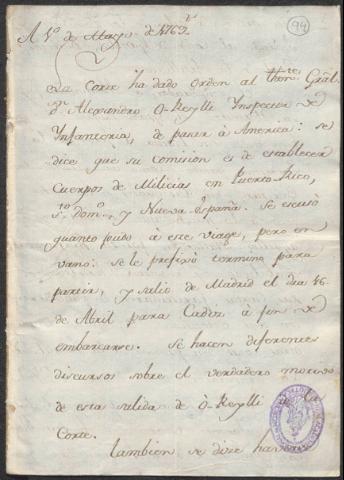 94
A 1º de Mayo de 1762
La Corte ha dado orden al thente. Gräl.
dn. Alexandro O-Reylli Ynspector de
Ynfanteria, de pasar à America: se
dice que su comision es de establecer
Cuerpos de Milicias en Puerto Rico,
Sto. Domo., y Nueva España. Se escusò
quanto pudo à este viage, pero en
vano: se le prefixó termino para
partir, y salio de Madrid el dia 16
de Abril para Cadiz à fin de
embarcarse. Se hacen diferentes
discursos sobre el verdadero motivo
de esta salida de O-Reylli de la
Corte.
Tambien se dize haver